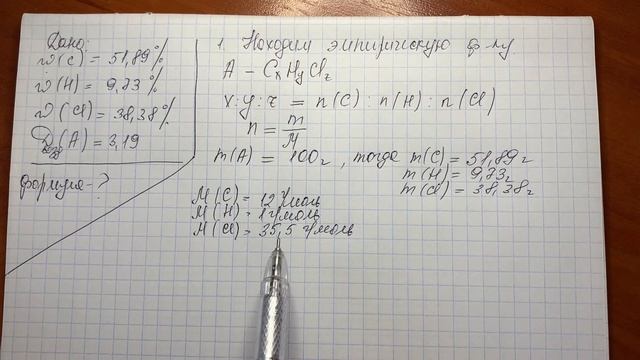 Дано:
w(C) = 51,89%
w(H) = 9,73%
w(Cl) = 38,38%
D возд (A) = 3,19
формула - ?
1. Находим эмпирическую ф-лу.
A - CxHyClz
x : y : z = n(C) : n(H) : n(Cl)
n = m/M
m(A) = 100г, тогда m(C) = 51,89г
m(H) = 9,73г
m(Cl) = 38,38г
M(C) = 12 г/моль
M(H) = 1 г/моль
M(Cl) = 35,5 г/моль